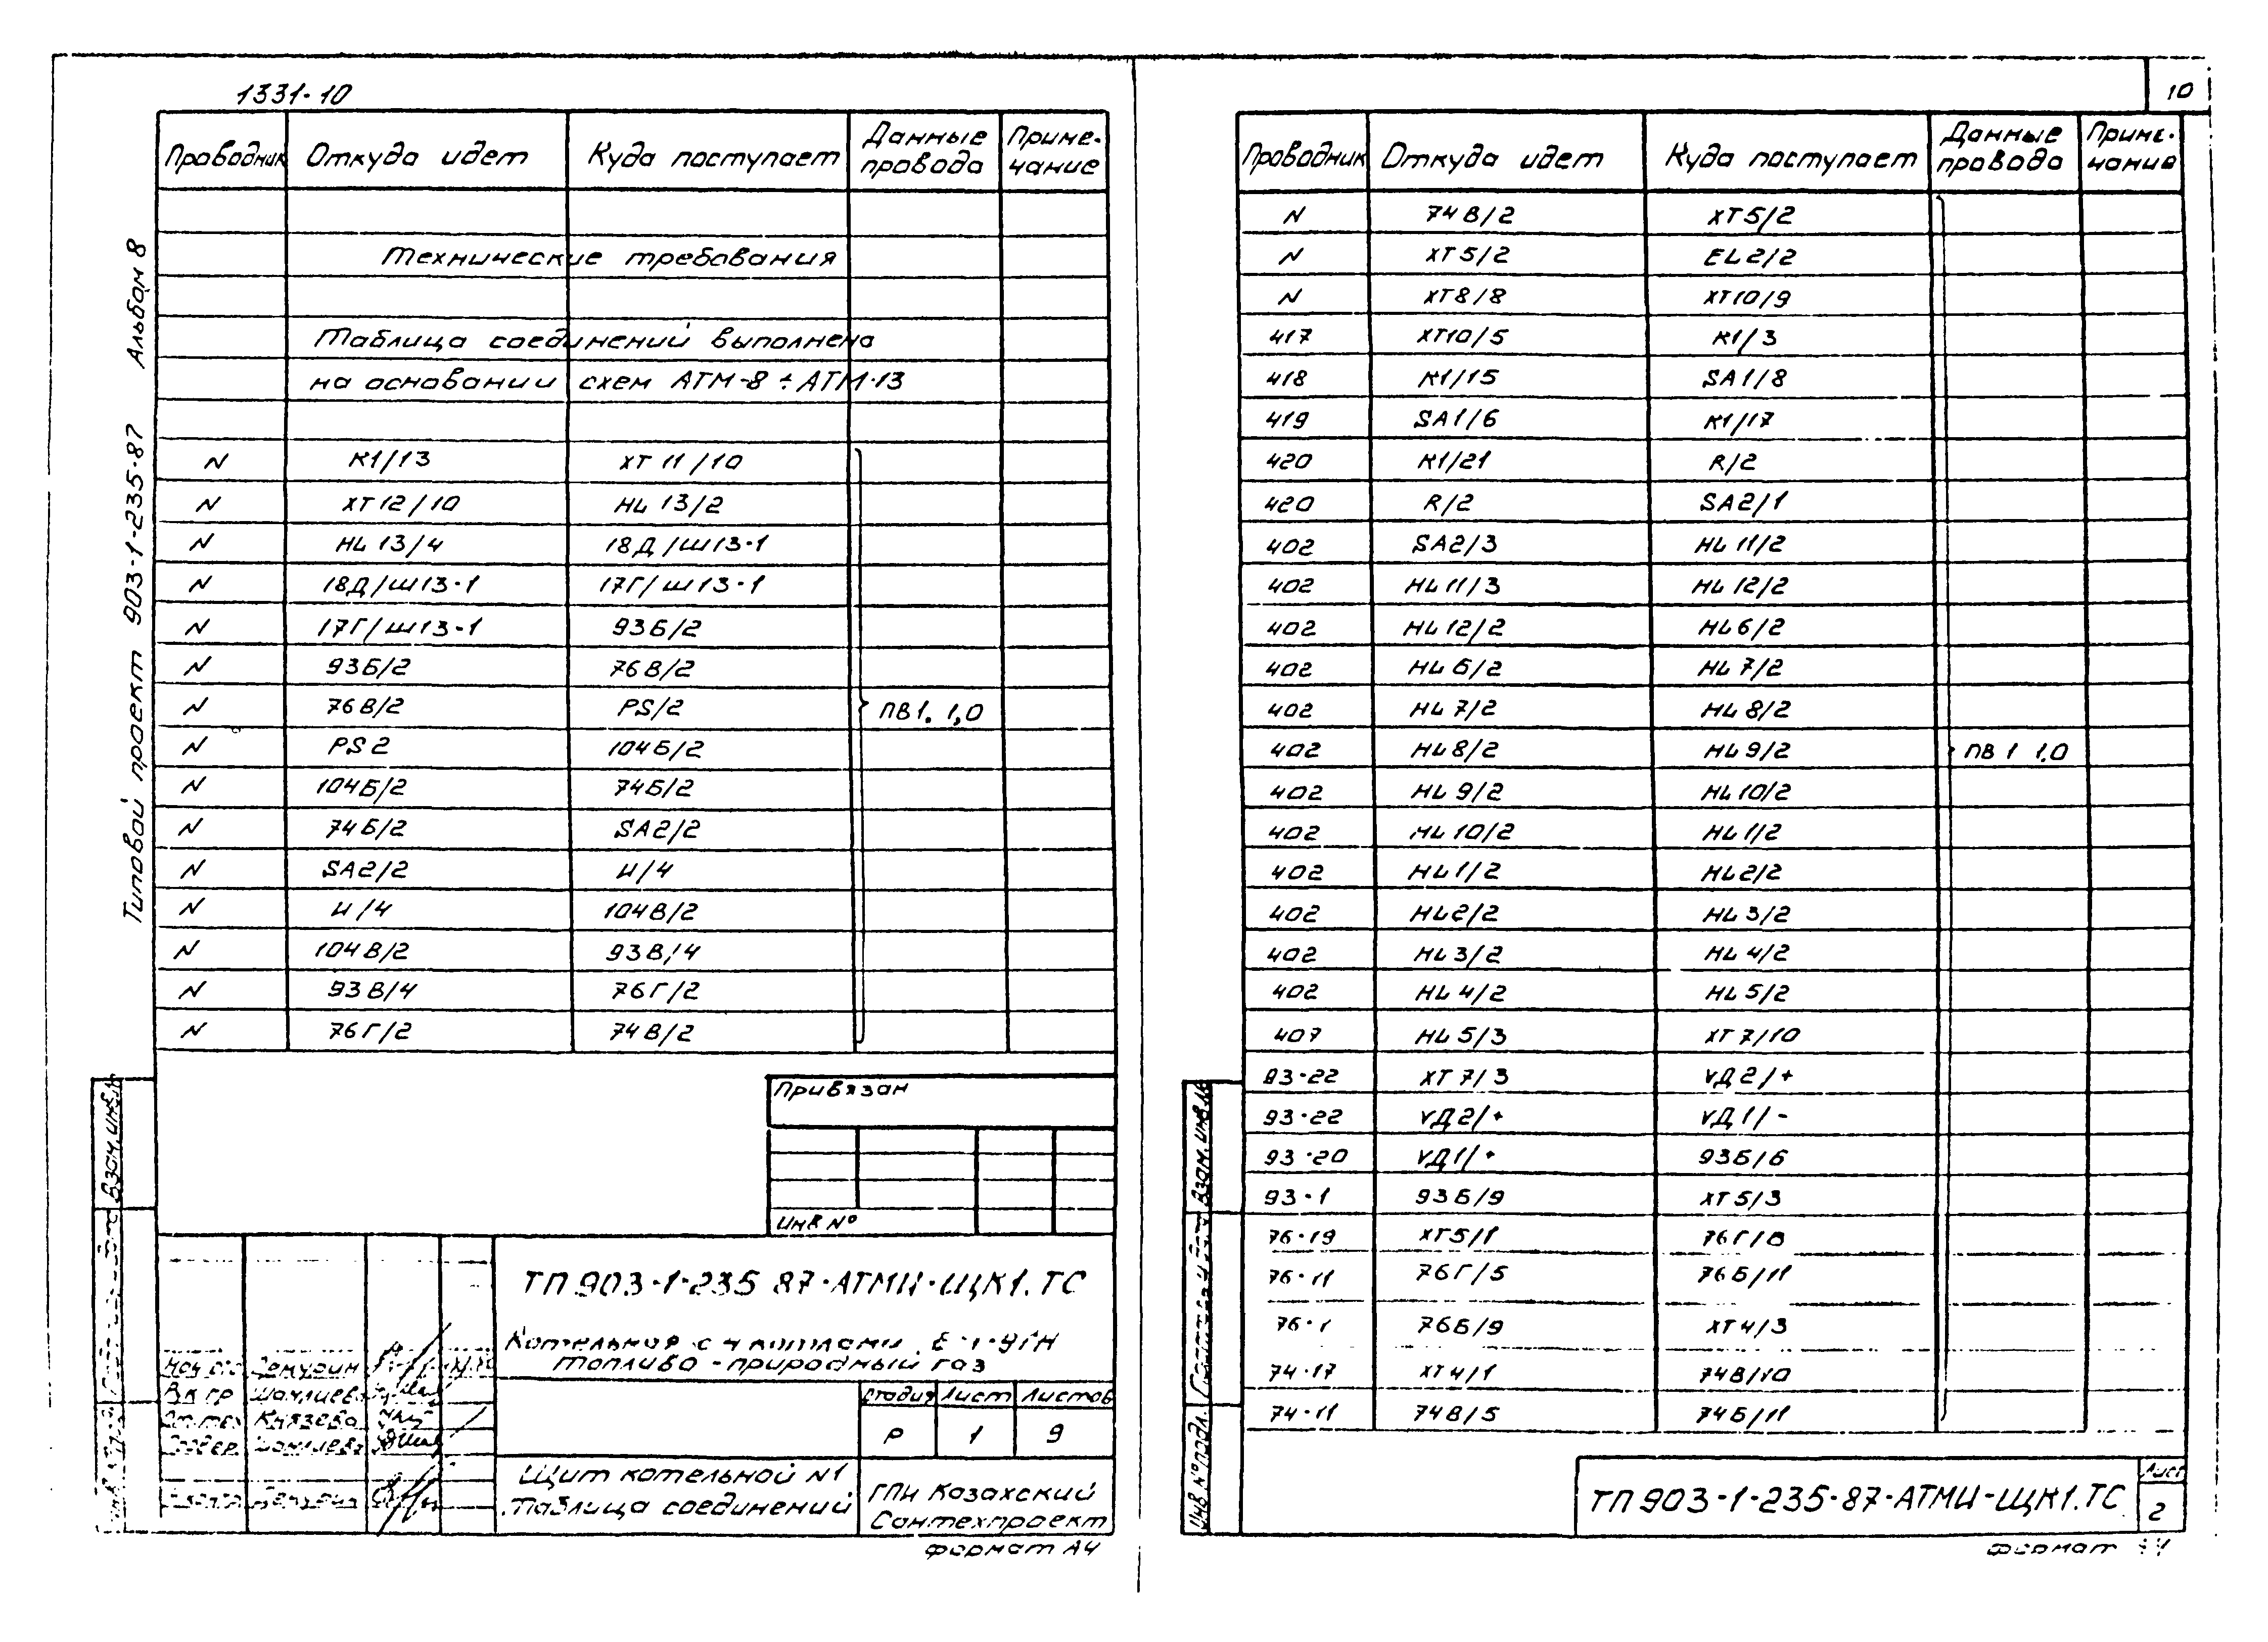 1331-10
10
Альбом 8
Типовой проект 903-1-235-87
Проводник Откуда идет Куда поступает Данные провода Приме-чание
Технические требования
Таблица соединений выполнена
на основании схем АТМ-8 ÷ АТМ-13
N К1/13 ХТ 11/10
N ХТ 12/10 HL 13/2
N HL 13/4 18Д/Ш13-1
N 18Д/Ш13-1 17Г/Ш13-1
N 17Г/Ш13-1 93Б/2
N 93Б/2 76В/2
N 76В/2 PS/2 ПВ1. 1,0
N PS 2 104Б/2
N 104Б/2 74Б/2
N 74Б/2 SA2/2
N SA2/2 И/4
N И/4 104В/2
N 104В/2 93В/4
N 93В/4 76Г/2
N 76Г/2 74В/2
Привязан
Инв №
ТП 903-1-235 87-АТМИ-ЩК1.ТС
Котельная с 4 котлами Е-1-9ГН
топливо - природный газ
Стадия Лист Листов
Р 1 9
Щит котельной N1
Таблица соединений
ГПИ Казахский
Сантехпроект
Князева
Взам. инв. №
формат А4
Проводник Откуда идет Куда поступает Данные провода Приме-чание
N 74В/2 ХТ5/2
N ХТ5/2 EL2/2
N ХТ8/8 ХТ10/9
417 ХТ10/5 К1/3
418 К1/15 SA1/8
419 SA1/6 К1/17
420 К1/21 R/2
420 R/2 SA2/1
402 SA2/3 HL 11/2
402 HL 11/3 HL 12/2
402 HL 12/2 HL6/2
402 HL 6/2 HL 7/2
402 HL 7/2 HL 8/2
402 HL8/2 HL 9/2 ПВ 1 1,0
402 HL 9/2 HL 10/2
402 HL 10/2 HL 1/2
402 HL 1/2 HL2/2
402 HL2/2 HL 3/2
402 HL 3/2 HL 4/2
402 HL 4/2 HL 5/2
407 HL 5/3 ХТ 7/10
93-22 ХТ 7/3 VД2/+
93-22 VД2/+ VД1/-
93-20 VД1/+ 93Б/6
93-1 93Б/9 ХТ5/3
76-19 ХТ5/1 76Г/8
76-11 76Г/5 76Б/11
76-1 76Б/9 ХТ4/3
74-17 ХТ4/1 74В/10
74-11 74В/5 74Б/11
Взам. инв. №
Инв. № подл.
ТП 903-1-235-87-АТМИ-ЩК1.ТС
Лист
2
формат